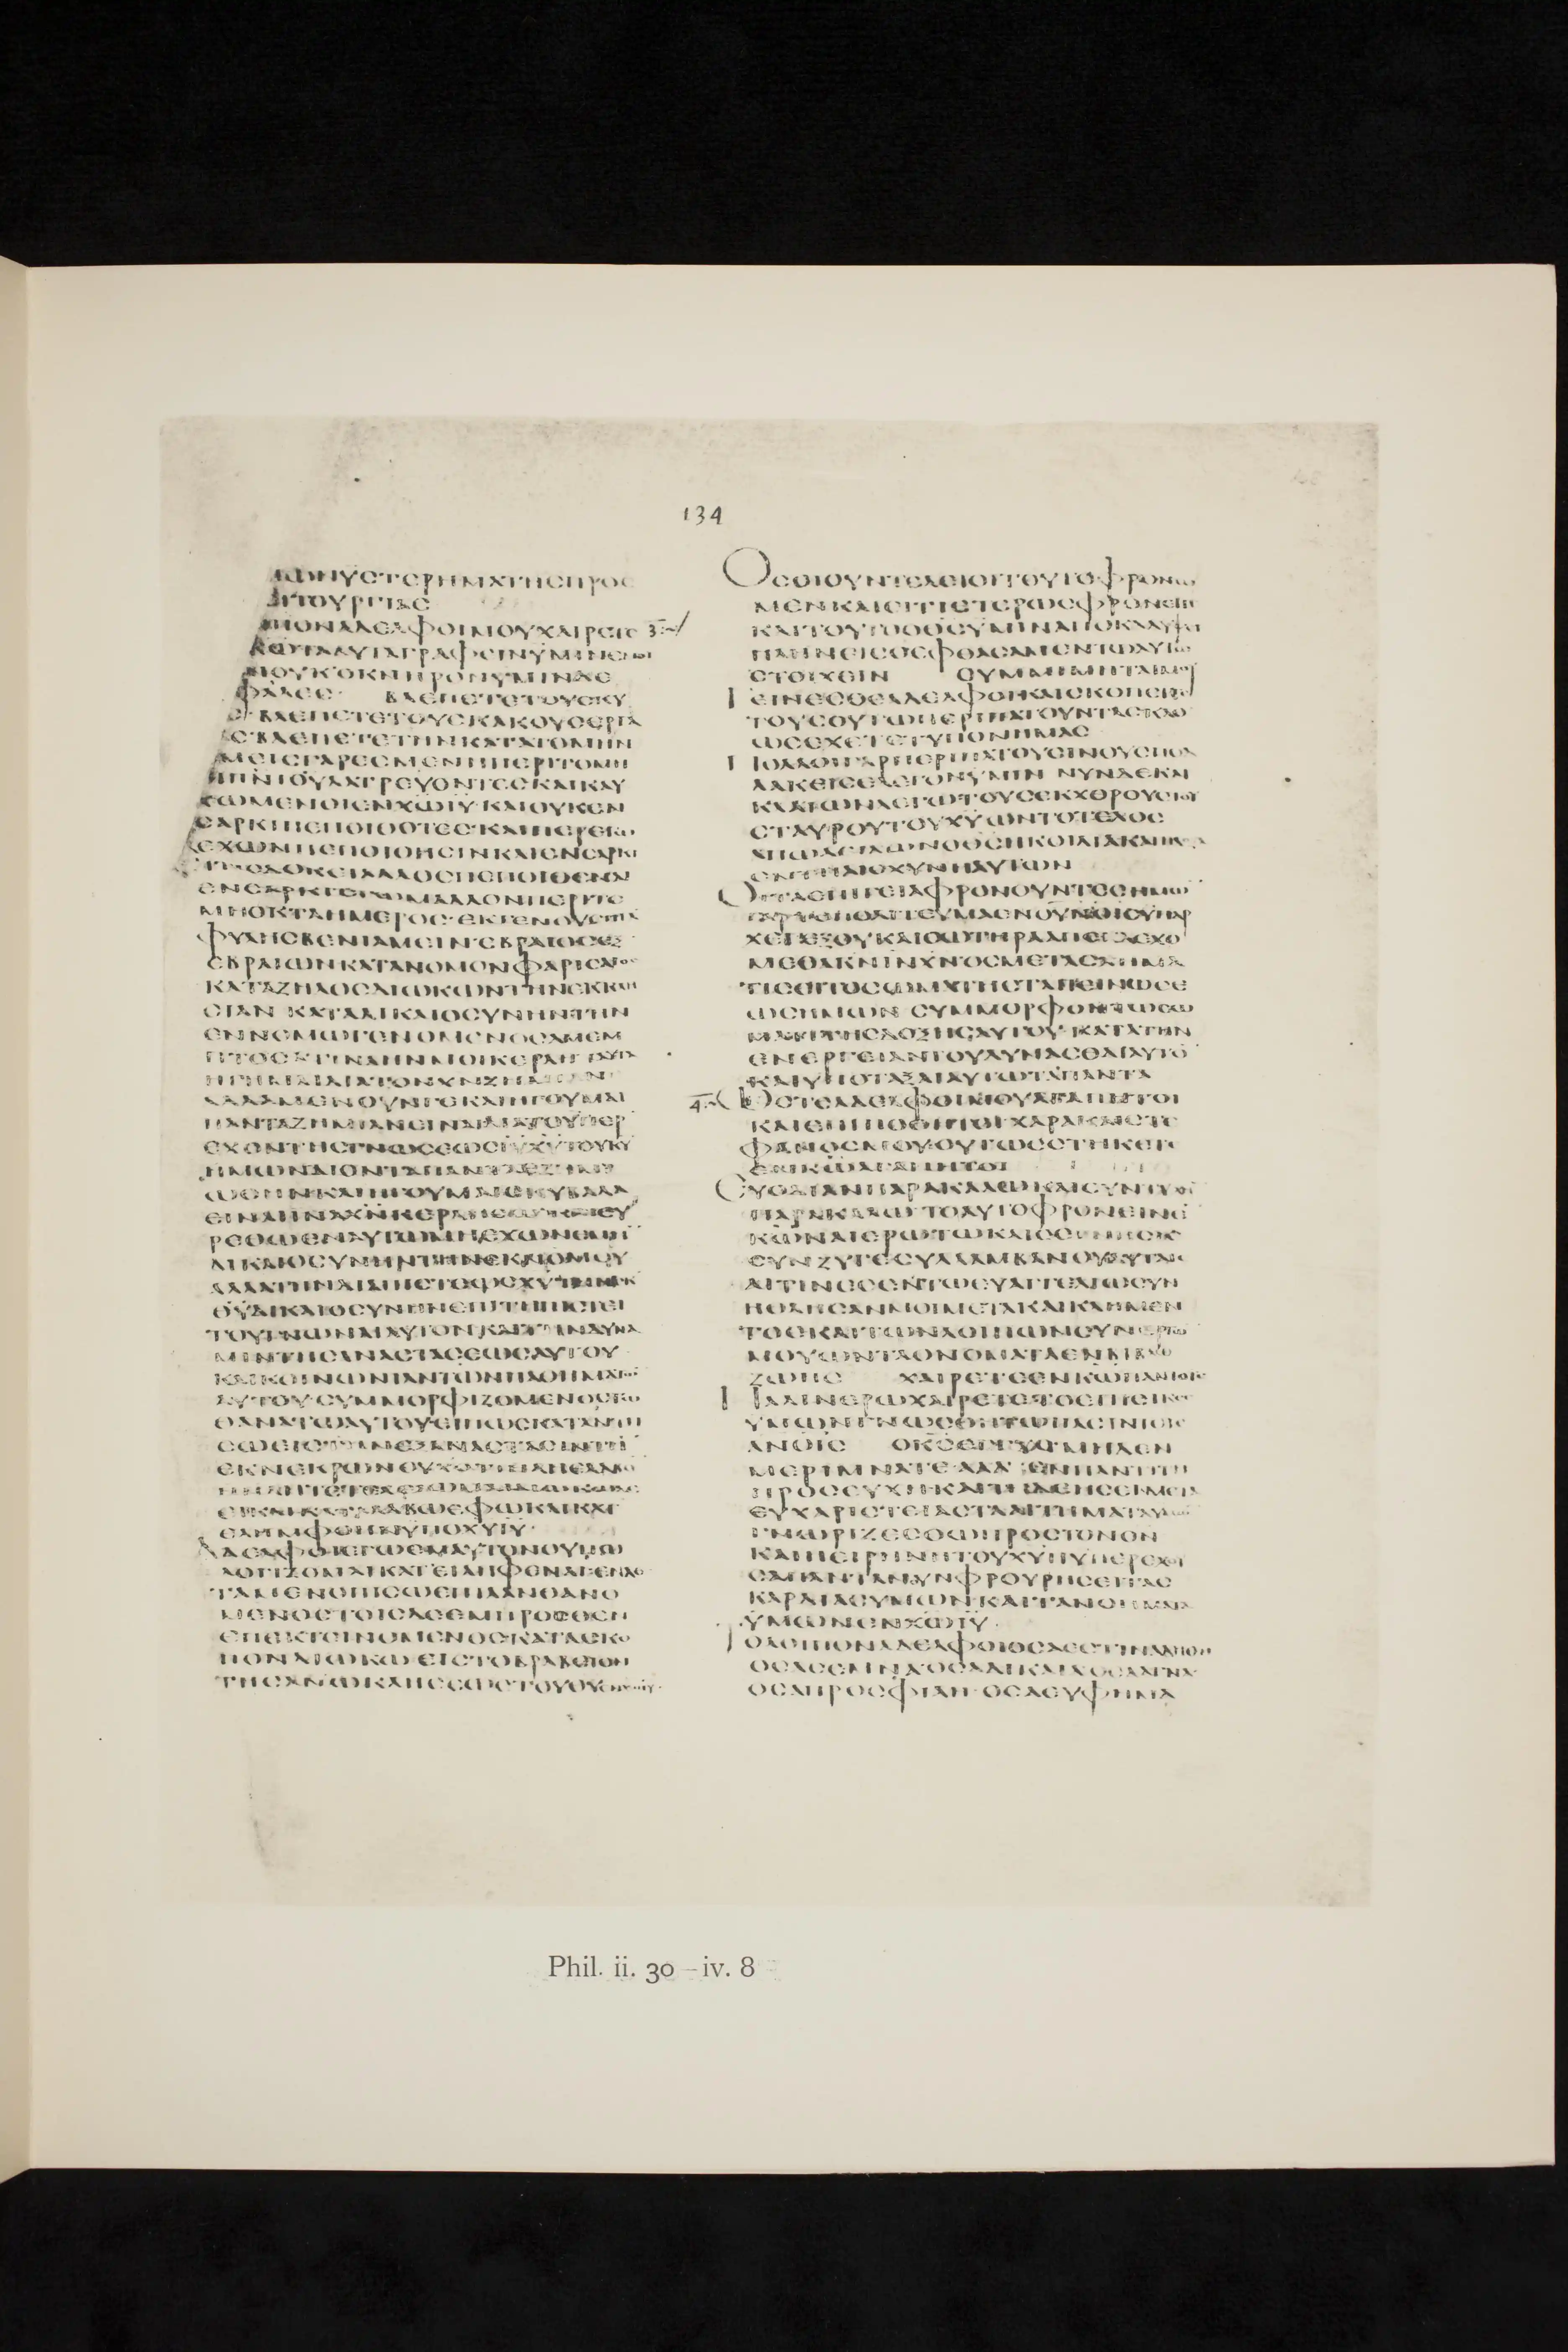 134
ΜΩΝΥCΤΕΡΗΜΑΤΗCΠΡΟC
ΛΙΤΟΥΡΓΙΑC
ΠΟΝΑΔΕΛΦΟΙΜΟΥΧΑΙΡΕΤΕ
3
ΤΑΑΥΤΑΓΡΑΦΕΙΝΥΜΙΝΕΜΟΙ
ΜΟΥΚΟΚΝΗΡΟΝΥΜΙΝΑC
ΦΑΛΕC ΒΛΕΠΕΤΕΤΟΥCΚΥ
CΒΛΕΠΕΤΕΤΟΥCΚΑΚΟΥCΕΡΓΑ
CΒΛΕΠΕΤΕΤΗΝΚΑΤΑΤΟΜΗΝ
ΜΕΙCΓΑΡΕCΜΕΝΗΠΕΡΙΤΟΜΗ
ΠΝΙΘΥΛΑΤΡΕΥΟΝΤΕCΚΑΙΚΑΥ
ΧΩΜΕΝΟΙΕΝΧΩΙΥΚΑΙΟΥΚΕΝ
CΑΡΚΙΠΕΠΟΙΘΟΤΕC·ΚΑΙΠΕΡΕΓΩ
ΕΧΩΝΠΕΠΟΙΘΗCΙΝΚΑΙΕΝCΑΡΚΙ
ΤΙCΔΟΚΕΙΑΛΛΟCΠΕΠΟΙΘΕΝΑΙ
ΕΝCΑΡΚΙΕΓΩΜΑΛΛΟΝΠΕΡΙΤΟ
ΜΗΟΚΤΑΗΜΕΡΟC·ΕΚΓΕΝΟΥCΙΗΛ
ΦΥΛΗCΒΕΝΙΑΜΕΙΝ·ΕΒΡΑΙΟCΕΞ
ΕΒΡΑΙΩΝΚΑΤΑΝΟΜΟΝΦΑΡΙCΑΙΟC
ΚΑΤΑΖΗΛΟCΔΙΩΚΩΝΤΗΝΕΚΚΛΗ
CΙΑΝ ΚΑΤΑΔΙΚΑΙΟCΥΝΗΝΤΗΝ
ΕΝΝΟΜΩΓΕΝΟΜΕΝΟCΑΜΕΜ
ΠΤΟCΑΤΙΝΑΗΝΜΟΙΚΕΡΔΗΤΑΥΤΑ
ΗΓΗΜΑΙΔΙΑΤΟΝΧΝΖΗΜΙΑΝ
ΑΛΛΑΜΕΝΟΥΝΓΕΚΑΙΗΓΟΥΜΑΙ
ΠΑΝΤΑΖΗΜΙΑΝΕΙΝΑΙΔΙΑΤΟΥΠΕΡ
ΕΧΟΝΤΗCΓΝΩCΕΩCΙΥΧΥΤΟΥΚΥ
ΗΜΩΝΔΙΟΝΤΑΠΑΝΤΑΕΖΗΜΙ
ΩΘΗΝΚΑΙΗΓΟΥΜΑΙCΚΥΒΑΛΑ
ΕΙΝΑΙΙΝΑΧΝΚΕΡΔΗCΩΚΑΙΕΥ
ΡΕΘΩΕΝΑΥΤΩΜΗΕΧΩΝΕΜΗΝ
ΔΙΚΑΙΟCΥΝΗΝΤΗΝΕΚΝΟΜΟΥ
ΑΛΛΑΤΗΝΔΙΑΠΙCΤΕΩCΧΥΤΗΝΕΚ
ΘΥΔΙΚΑΙΟCΥΝΗΝΕΠΙΤΗΠΙCΤΕΙ
ΤΟΥΓΝΩΝΑΙΑΥΤΟΝΚΑΙΤΗΝΔΥΝΑ
ΜΙΝΤΗCΑΝΑCΤΑCΕΩCΑΥΤΟΥ
ΚΑΙΚΟΙΝΩΝΙΑΝΤΩΝΠΑΘΗΜΑΤΩ
ΑΥΤΟΥ·CΥΜΜΟΡΦΙΖΟΜΕΝΟCΤΩ
ΘΑΝΑΤΩΑΥΤΟΥΕΙΠΩCΚΑΤΑΝΤΗ
CΩΕΙCΤΗΝΕΞΑΝΑCΤΑCΙΝΤΗ
ΕΚΝΕΚΡΩΝΟΥΧΟΤΙΗΔΗΕΛΑΒΟ
ΕΙΚΑΙΚΑΤΑΛΑΒΩΕΦΩΚΑΙΚΑΤ
ΕΛΗΜΦΘΗΝΥΠΟΧΥΙΥ·
ΑΔΕΛΦΟΙΕΓΩΕΜΑΥΤΟΝΟΥΠΩ
ΛΟΓΙΖΟΜΑΙΚΑΤΕΙΛΗΦΕΝΑΙΕΝΔΕ
ΤΑΜΕΝΟΠΙCΩΕΠΙΛΑΝΘΑΝΟ
ΜΕΝΟCΤΟΙCΔΕΕΜΠΡΟCΘΕΝ
ΕΠΕΚΤΕΙΝΟΜΕΝΟCΚΑΤΑCΚΟ
ΠΟΝΔΙΩΚΩ ΕΙCΤΟΒΡΑΒΕΙΟΝ
ΤΗCΑΝΩΚΛΗCΕΩCΤΟΥΘΥ
ΟCΟΙΟΥΝΤΕΛΕΙΟΙΤΟΥΤΟΦΡΟΝΩ
ΜΕΝΚΑΙΕΙΤΙΕΤΕΡΩCΦΡΟΝΕΙΤΕ
ΚΑΙΤΟΥΤΟΟΘCΥΜΙΝΑΠΟΚΑΛΥΨΕΙ
ΠΛΗΝΕΙCΟΕΦΘΑCΑΜΕΝΤΩΑΥΤΩ
CΤΟΙΧΕΙΝ CΥΜΜΙΜΗΤΑΙΜΟΥ
ΓΕΙΝΕCΘΕΑΔΕΛΦΟΙΚΑΙCΚΟΠΕΙΤΕ
ΤΟΥCΟΥΤΩΠΕΡΙΠΑΤΟΥΝΤΑCΚΑΘ
ΩCΕΧΕΤΕΤΥΠΟΝΗΜΑC
ΠΟΛΛΟΙΓΑΡΠΕΡΙΠΑΤΟΥCΙΝΟΥCΠΟΛ
ΛΑΚΕΙCΕΛΕΓΟΝΥΜΙΝ ΝΥΝΔΕΚΑΙ
ΚΛΑΙΩΝΛΕΓΩΤΟΥCΕΚΧΘΡΟΥCΤΟΥ
CΤΑΥΡΟΥΤΟΥΧΥΩΝΤΟΤΕΛΟC
ΑΠΩΛΕΙΑΩΝΟΘCΗΚΟΙΛΙΑΚΑΙΗΔΟΞΑ
ΕΝΤΗΑΙCΧΥΝΗΑΥΤΩΝ
ΟΙΤΑΕΠΙΓΕΙΑΦΡΟΝΟΥΝΤΕCΗΜΩ
ΓΑΡΤΟΠΟΛΙΤΕΥΜΑΕΝΟΥΝΟΙCΥΠΑΡ
ΧΕΙΕΞΟΥΚΑΙCΩΤΗΡΑΑΠΕΚΔΕΧΟ
ΜΕΘΑΚΝΙΝΧΝΟCΜΕΤΑCΧΗΜΑ
ΤΙCΕΙΤΟCΩΜΑΤΗCΤΑΠΕΙΝΩCΕ
ΩCΗΜΩΝ CΥΜΜΟΡΦΟΝΤΩCΩ
ΜΑΤΙΤΗCΔΟΞΗCΑΥΤΟΥ·ΚΑΤΑΤΗΝ
ΕΝΕΡΓΕΙΑΝΤΟΥΔΥΝΑCΘΑΙΑΥΤΟ
ΚΑΙΥΠΟΤΑΞΑΙΑΥΤΩΤΑΠΑΝΤΑ
4
ΩCΤΕΑΔΕΛΦΟΙΜΟΥΑΓΑΠΗΤΟΙ
ΚΑΙΕΠΙΠΟΘΗΤΟΙΧΑΡΑΚΑΙCΤΕ
ΦΑΝΟCΜΟΥ·ΟΥΤΩCCΤΗΚΕΤΕ
ΕΝΚΩΑΓΑΠΗΤΟΙ
ΕΥΟΔΙΑΝΠΑΡΑΚΑΛΩΚΑΙCΥΝΤΥΧΗ
ΠΑΡΑΚΑΛΩΤΟΑΥΤΟΦΡΟΝΕΙΝΕ
ΚΩΝΑΙΕΡΩΤΩΚΑΙCΕΓΝΗCΙΕ
CΥΝΖΥΓΕCΥΛΛΑΜΒΑΝΟΥΑΥΤΑΙC
ΑΙΤΙΝΕCΕΝΤΩΕΥΑΓΓΕΛΙΩCΥΝ
ΗΘΛΗCΑΝΜΟΙΜΕΤΑΚΑΙΚΛΗΜΕΝ
ΤΟCΚΑΙΤΩΝΛΟΙΠΩΝCΥΝΕΡΓΩ
ΜΟΥΩΝΤΑΟΝΟΜΑΤΑΕΝΒΙΒΛΩ
ΖΩΗC ΧΑΙΡΕΤΕΕΝΚΩΠΑΝΤΟΤΕ
ΠΑΛΙΝΕΡΩΧΑΙΡΕΤΕΤΟΕΠΙΕΙΚΕC
ΥΜΩΝΓΝΩCΘΗΤΩΠΑCΙΝΤΟΙC
ΑΝΟΙC ΟΚCΕΓΓΥCΜΗΔΕΝ
ΜΕΡΙΜΝΑΤΕ·ΑΛΛΕΝΠΑΝΤΙΤΗ
ΠΡΟCΕΥΧΗΚΑΙΤΗΔΕΗCΕΙΜΕΤΑ
ΕΥΧΑΡΙCΤΕΙΑCΤΑΑΙΤΗΜΑΤΑΥΜΩ
ΓΝΩΡΙΖΕCΘΩΠΡΟCΤΟΝΘΝ
ΚΑΙΗΕΙΡΗΝΗΤΟΥΧΥΗΥΠΕΡΕΧΟΥ
CΑΠΑΝΤΑΝΟΥΝΦΡΟΥΡΗCΕΙΤΑC
ΚΑΡΔΙΑCΥΜΩΝΚΑΙΤΑΝΟΗΜΑΤΑ
ΥΜΩΝΕΝΧΩΙΥ·
ΤΟΛΟΙΠΟΝΑΔΕΛΦΟΙΟCΑΕCΤΙΝΑΛΗΘΗ
ΟCΑCΕΜΝΑ·ΟCΑΔΙΚΑΙΑ·ΟCΑΑΓΝΑ
ΟCΑΠΡΟCΦΙΛΗ·ΟCΑΕΥΦΗΜΑ
Phil. ii. 30 – iv. 8